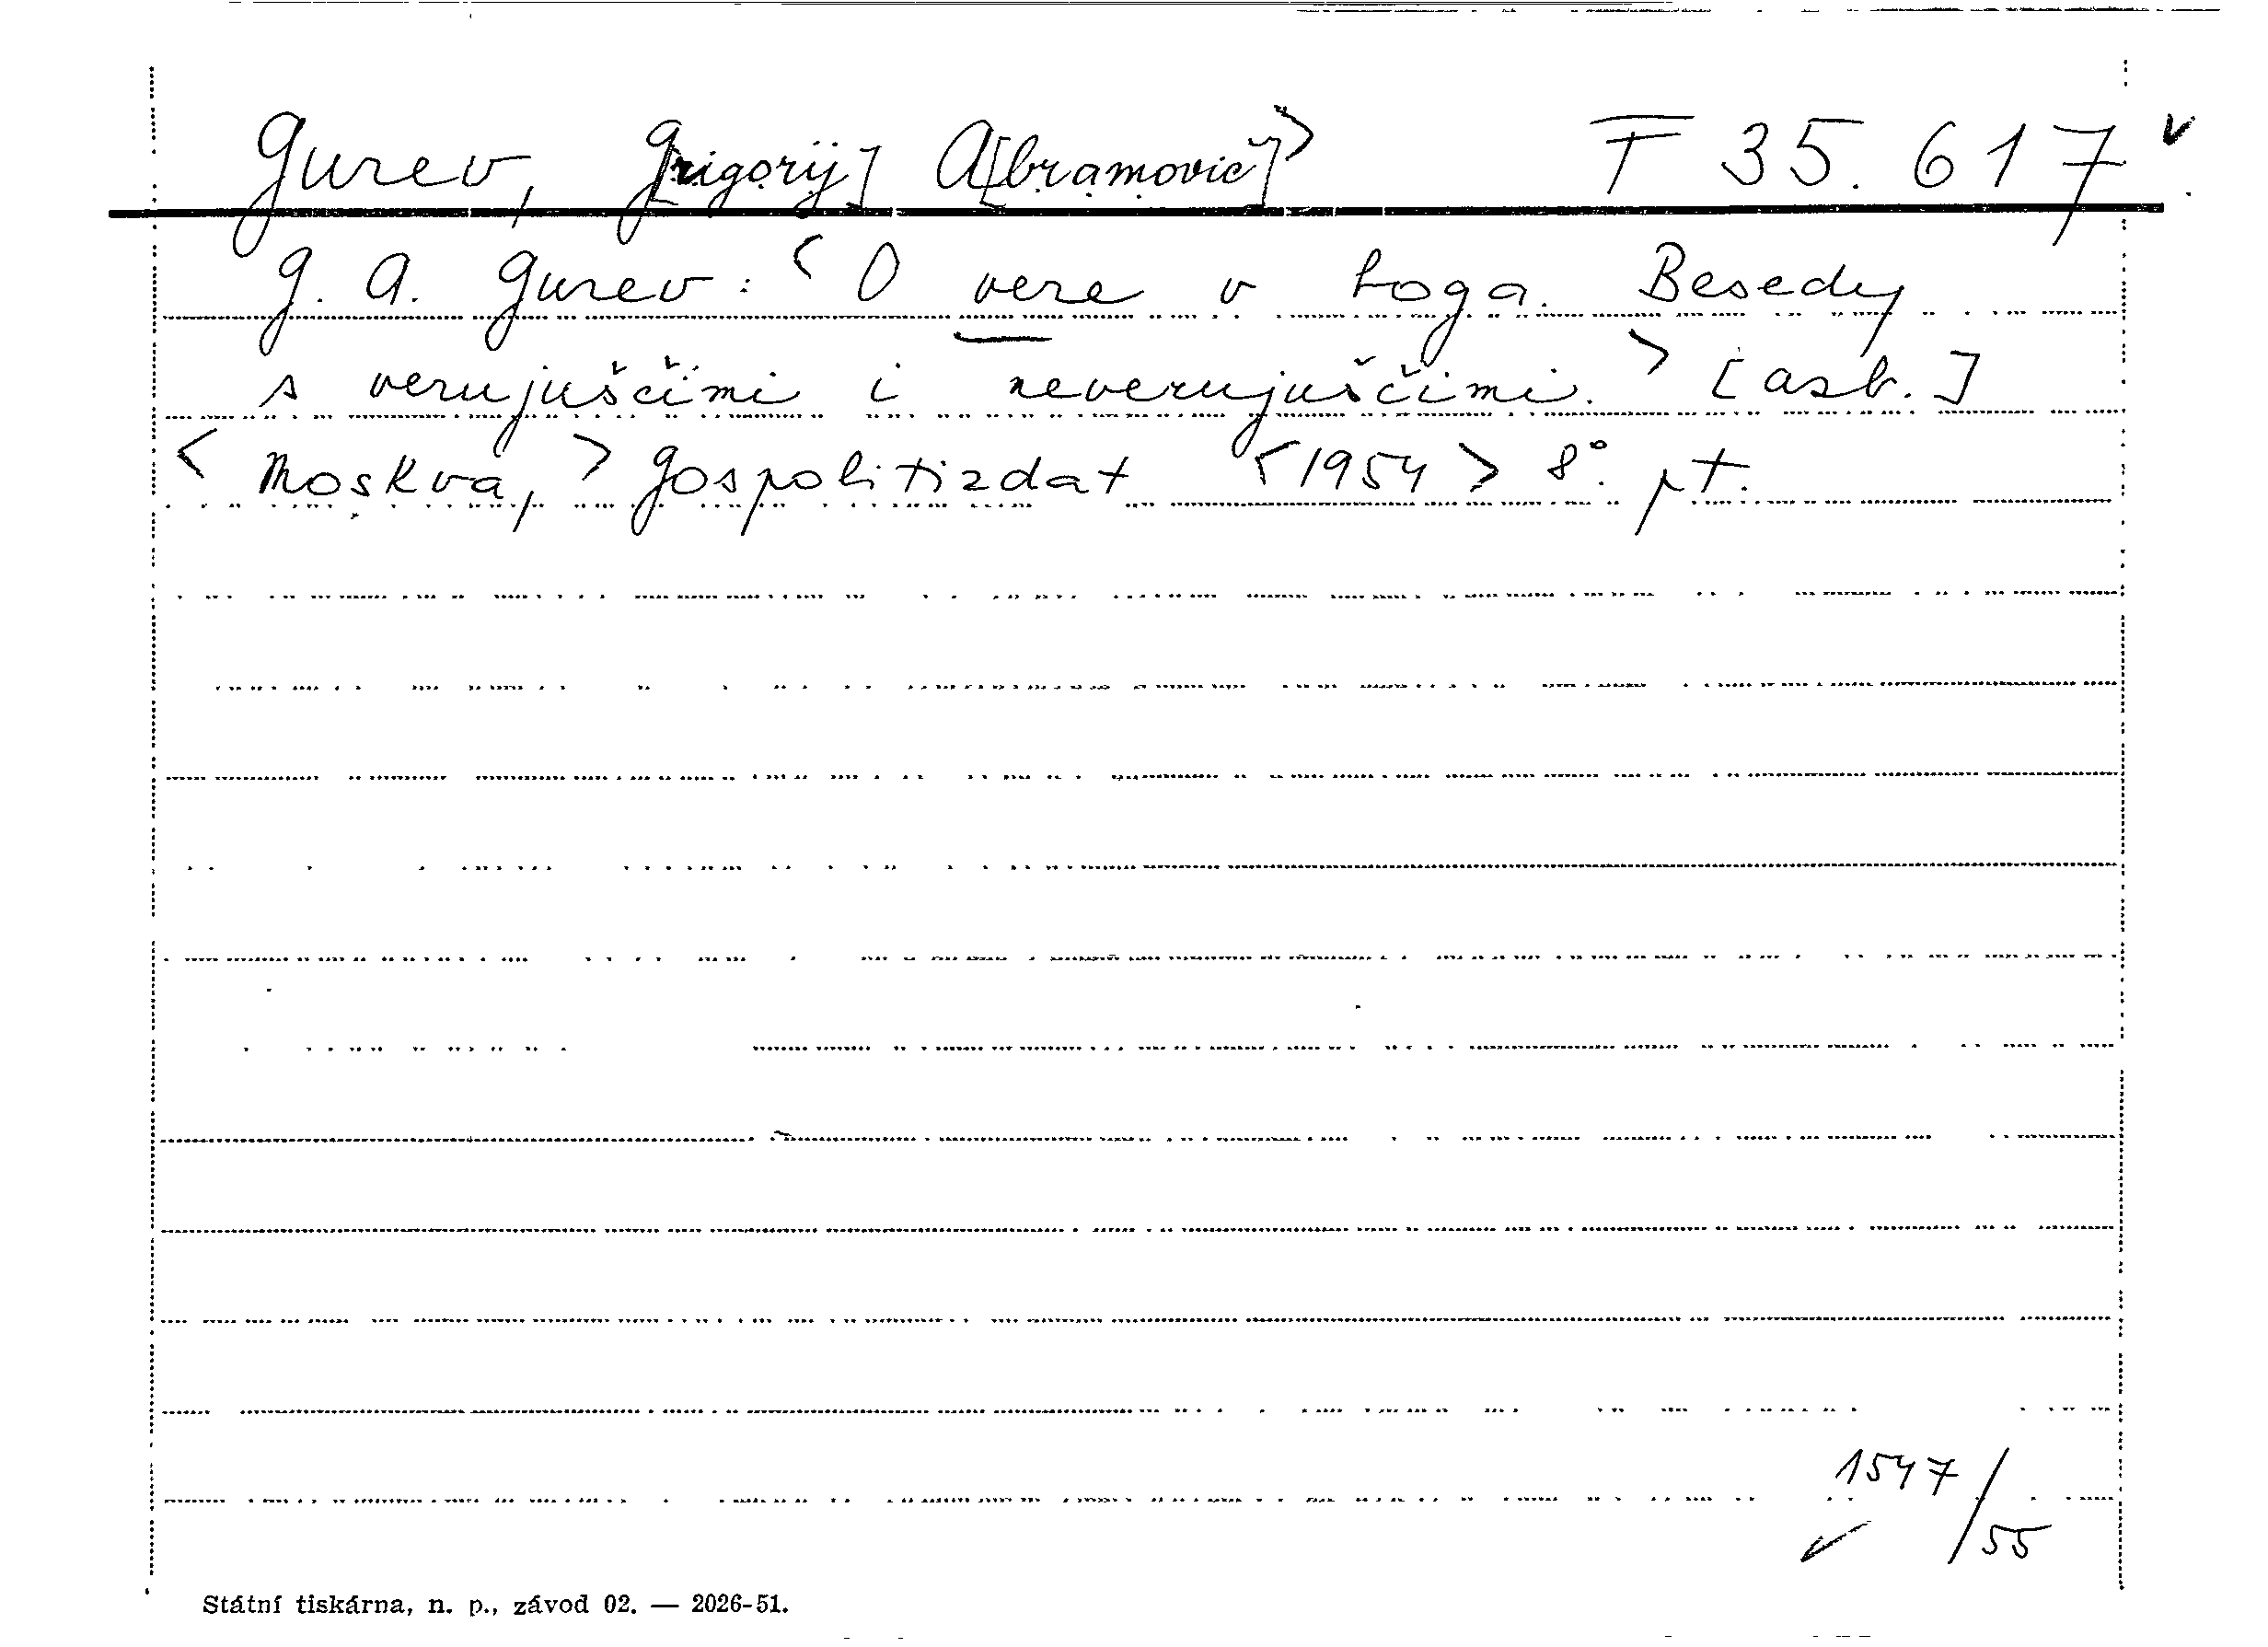 Gurev, G[rigorij] A[bramovič]> F 35.617 v
G. A. Gurev: <O vere v boga. Besedy
s verujuščimi i neverujuščimi.> [asb.]
<Moskva,> Gospolitizdat <1954> 8°. pt.
1547/55
Státní tiskárna, n. p., závod 02. — 2026-51.